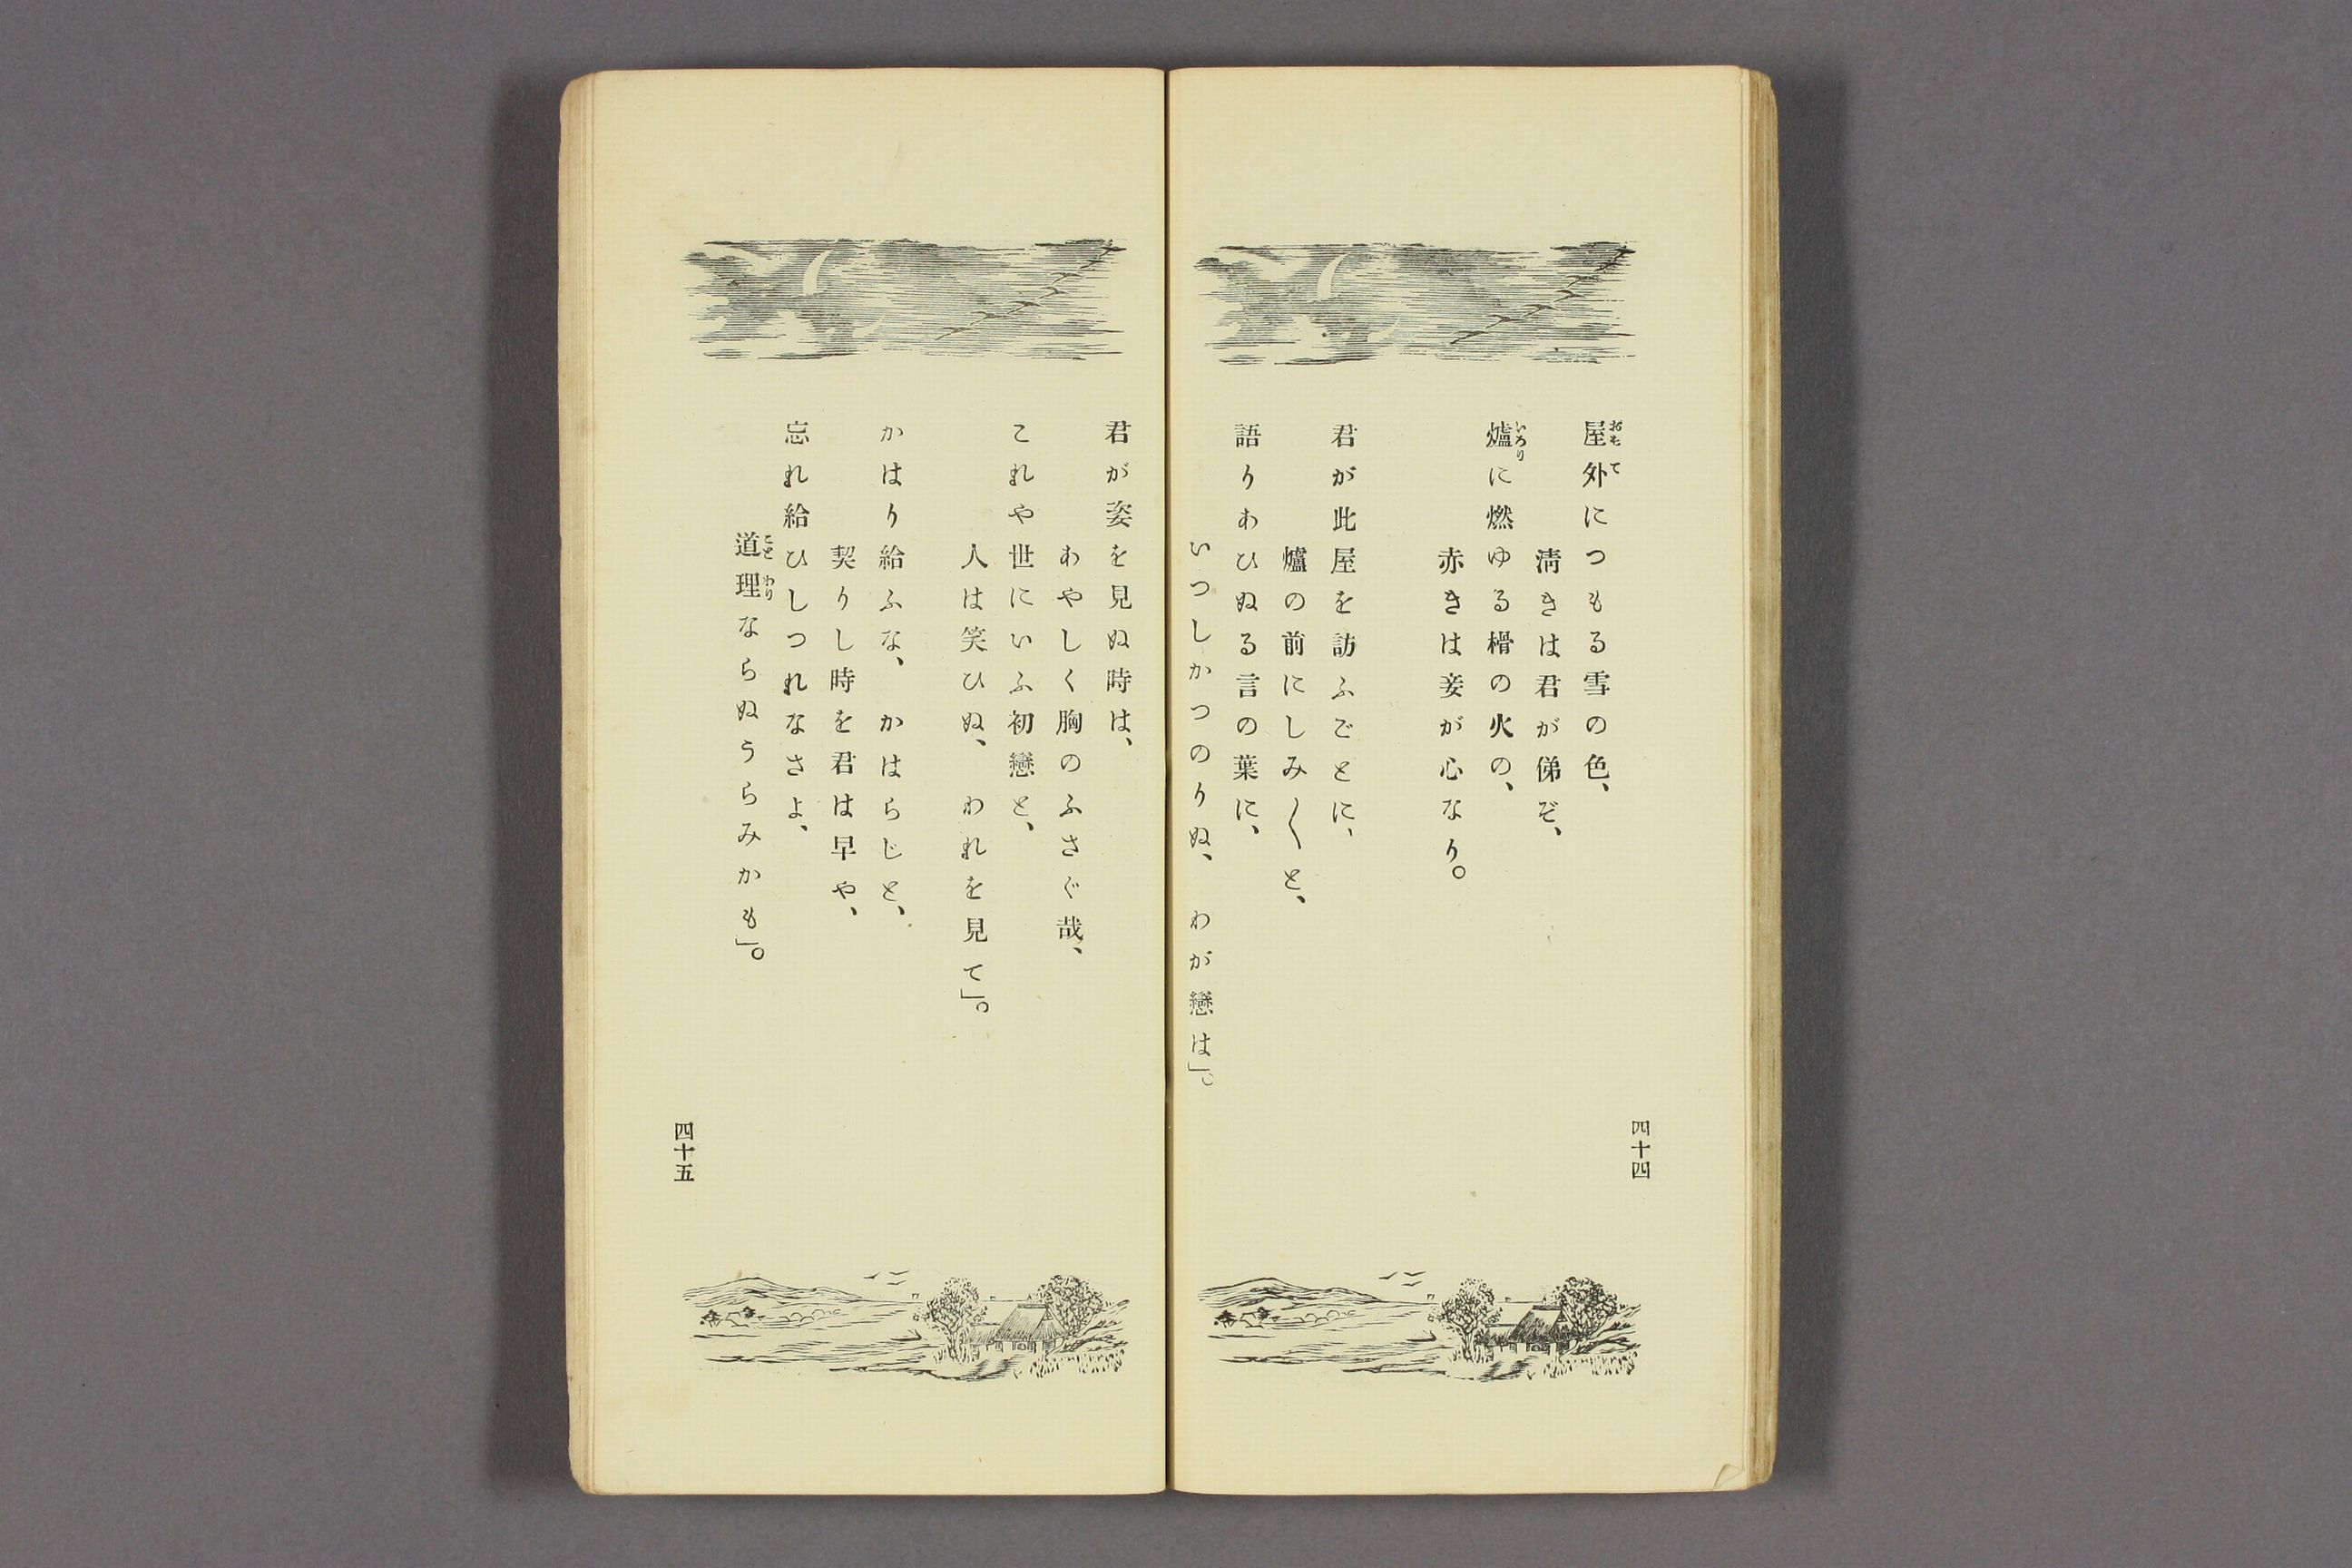 屋外につもる雪の色、
清きは君が俤ぞ、
爐に燃ゆる榾の火の、
赤きは妾が心なり。
君が此屋を訪ふごとに、
爐の前にしみ〳〵と、
語りあひぬる言の葉に、
いつしかつのりぬ、　わが戀は」。
四十四
君が姿を見ぬ時は、
あやしく胸のふさぐ哉、
これや世にいふ初戀と、
人は笑ひぬ、　われを見て」。
かはり給ふな、　かはらじと、
契りし時を君は早や、
忘れ給ひしつれなさよ、
道理ならぬうらみかも」。
四十五